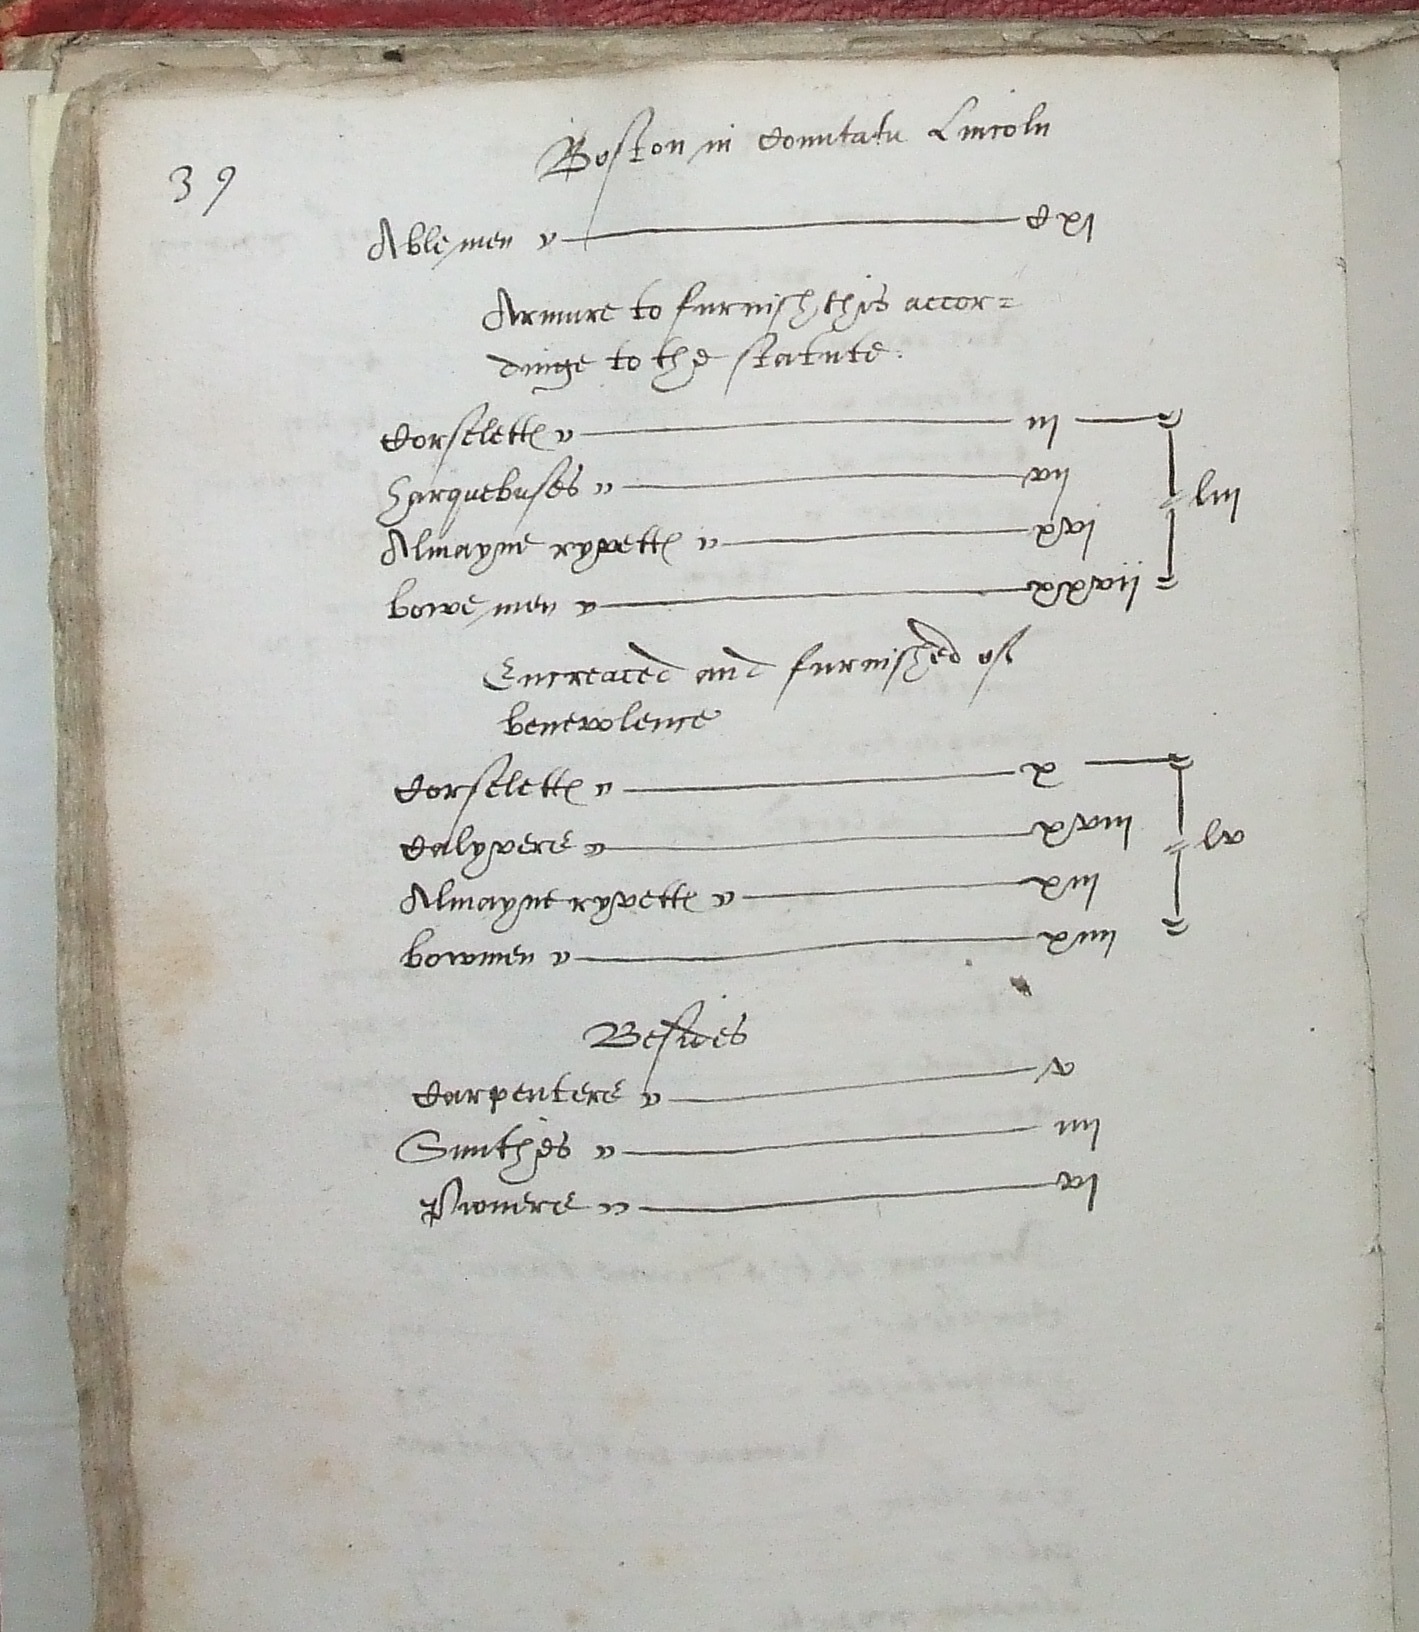 39
Boston in Comitatu Lincoln
Able men Cxj
Armure to furnish this accor=
dinge to the statute.
Corselettes iij
Harquebuses vij
Almayne ryvettes xvj
bowe men xxvij
liij
Encreaced and furnished of
benevolence
Corselettes x
Calyvers xviij
Almayne ryvettes xiij
bowmen xiiij
lv
Besides
Carpenters v
Smithes iiij
Pioners vj